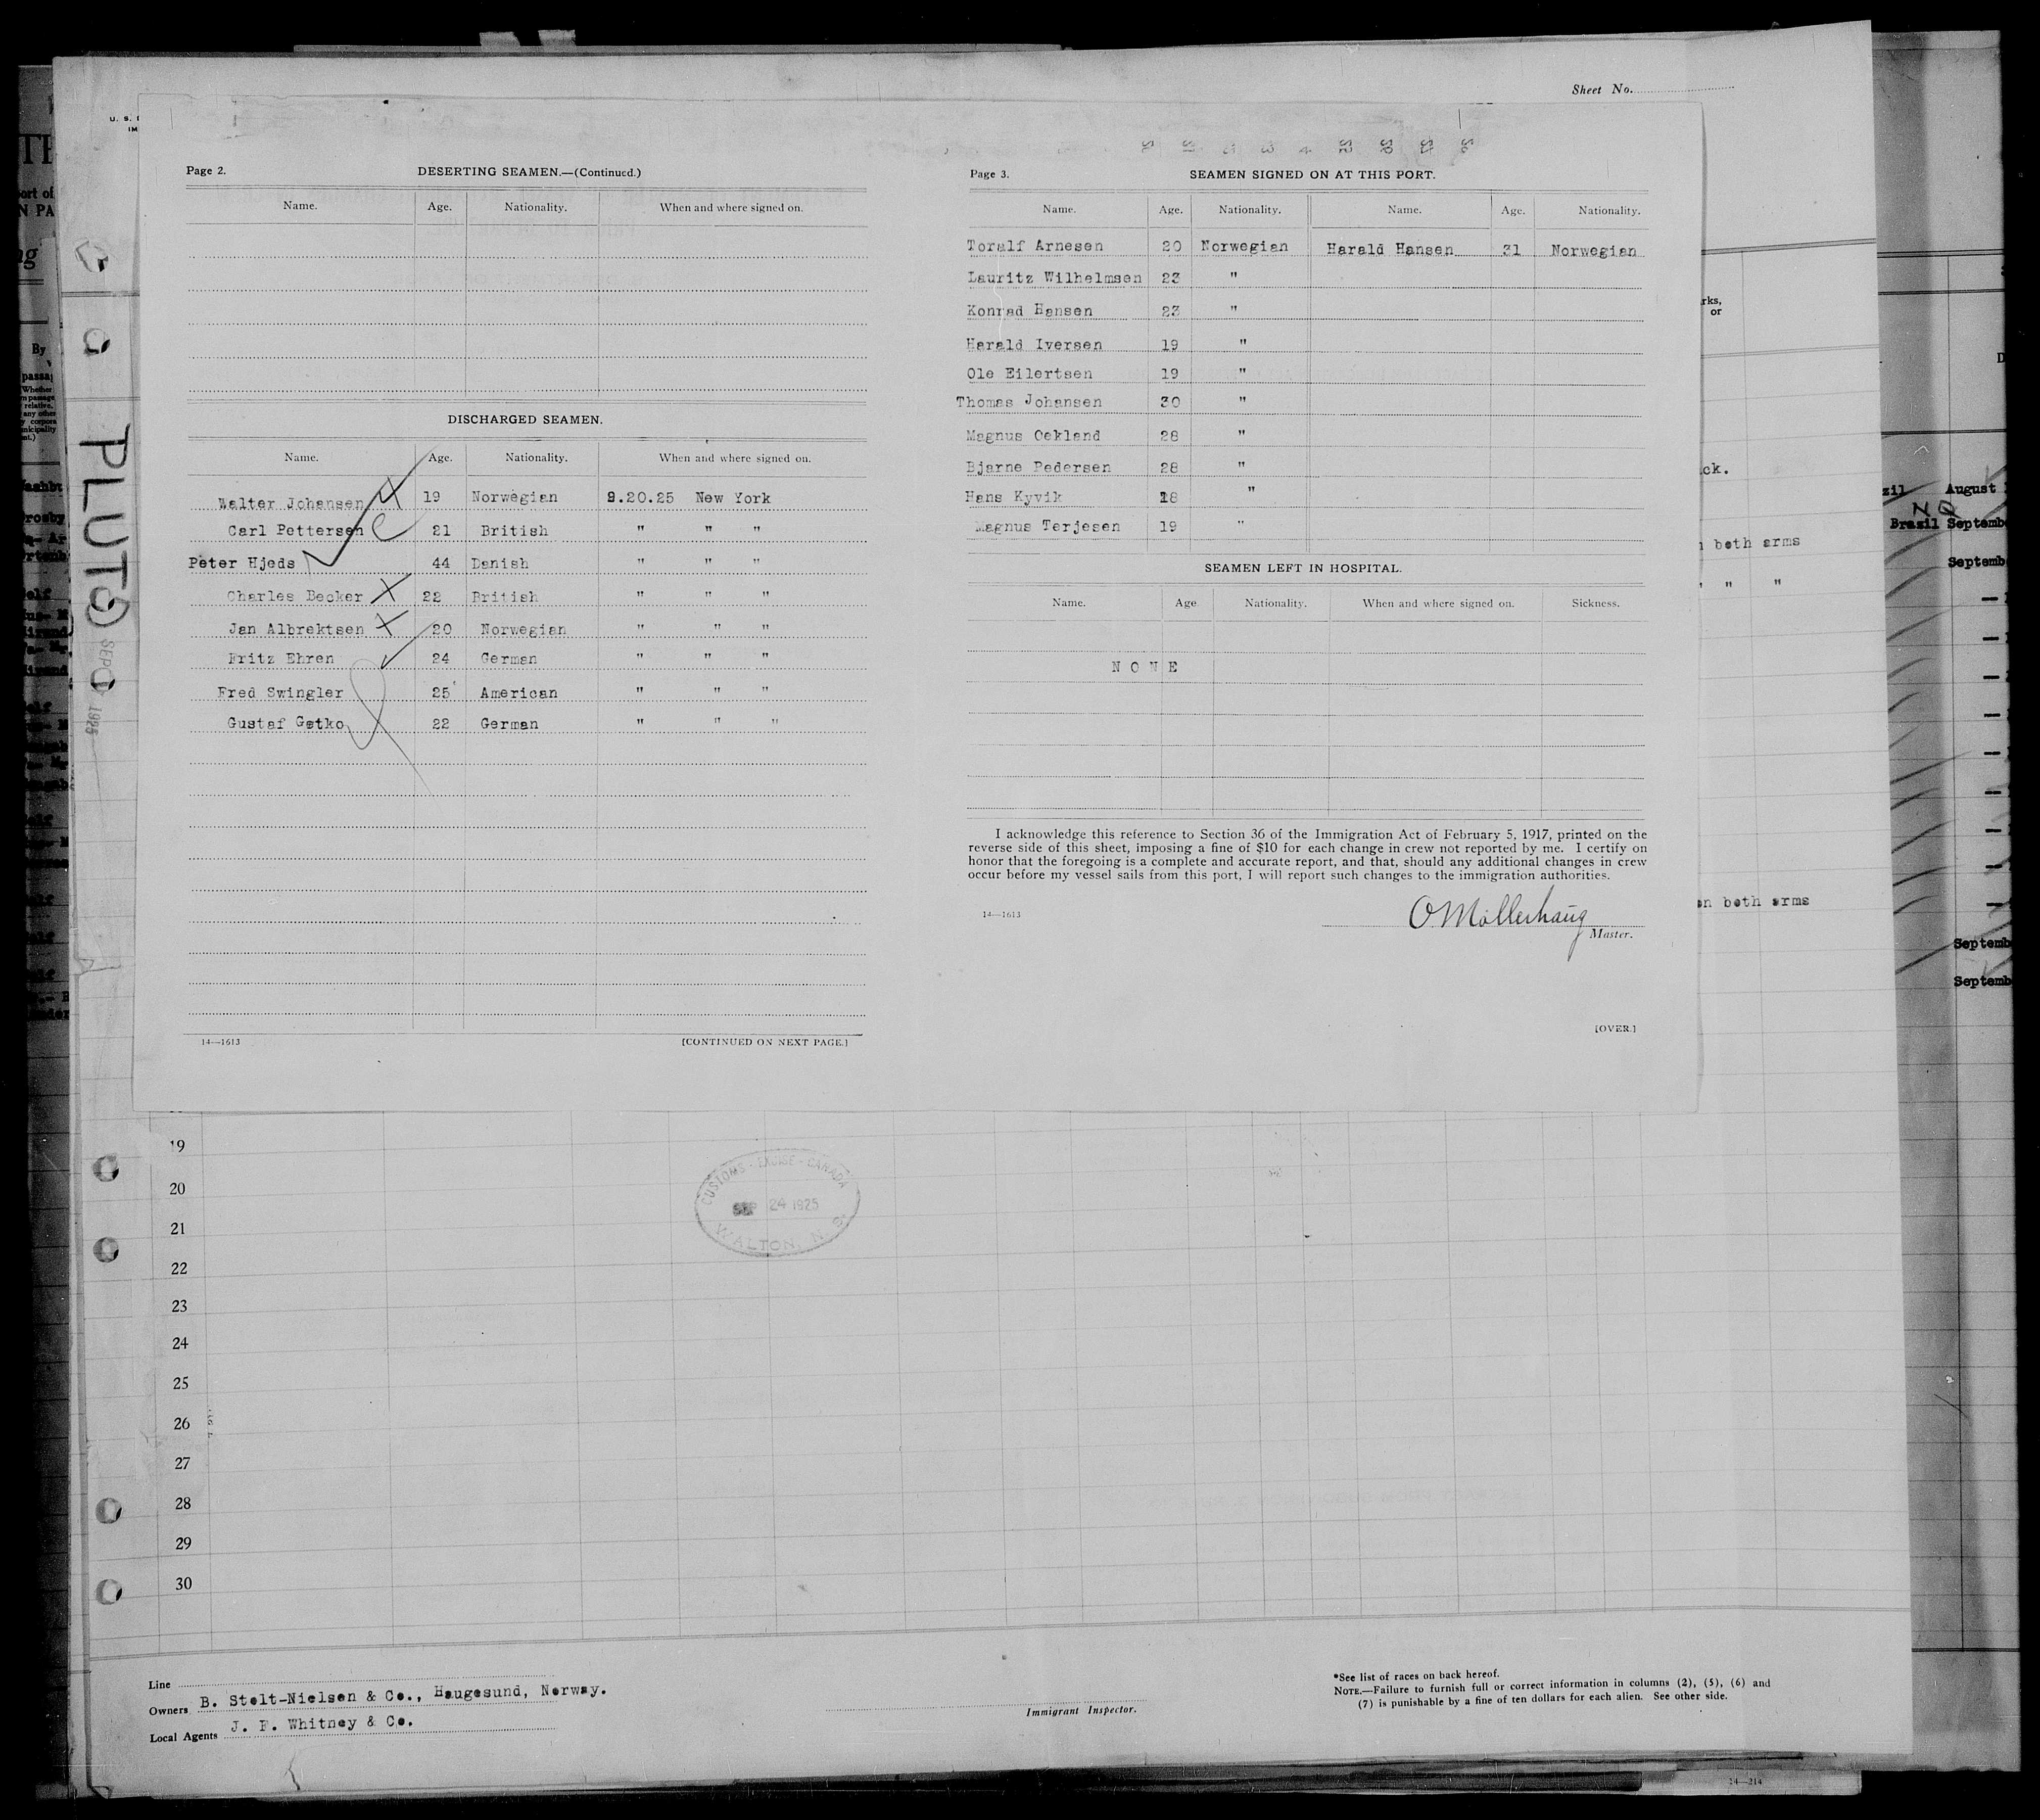 Sheet No.
Page 2.
DESERTING SEAMEN.—(Continued.)
Name. Age. Nationality. When and where signed on.
DISCHARGED SEAMEN.
Name. Age. Nationality. When and where signed on.
Walter Johansen 19 Norwegian 9.20.25 New York
Carl Pettersen 21 British " " "
Peter Hjeds 44 Danish " " "
Charles Becker 22 British " " "
Jan Albrektsen 20 Norwegian " " "
Fritz Ehren 24 German " " "
Fred Swingler 25 American " " "
Gustaf Getko 22 German " " "
14—1613
[CONTINUED ON NEXT PAGE.]
Page 3.
SEAMEN SIGNED ON AT THIS PORT.
Name. Age. Nationality. Name. Age. Nationality.
Toralf Arnesen 20 Norwegian Harald Hansen 31 Norwegian
Lauritz Wilhelmsen 23 "
Konrad Hansen 23 "
Harald Iversen 19 "
Ole Eilertsen 19 "
Thomas Johansen 30 "
Magnus Oekland 28 "
Bjarne Pedersen 28 "
Hans Kyvik 18 "
Magnus Terjesen 19 "
SEAMEN LEFT IN HOSPITAL.
Name. Age Nationality. When and where signed on. Sickness.
NONE
I acknowledge this reference to Section 36 of the Immigration Act of February 5, 1917, printed on the
reverse side of this sheet, imposing a fine of $10 for each change in crew not reported by me. I certify on
honor that the foregoing is a complete and accurate report, and that, should any additional changes in crew
occur before my vessel sails from this port, I will report such changes to the immigration authorities.
14—1613
O Möllerhaug
Master.
[OVER.]
PLUTO
SEP 1925
or
both arms
" "
both arms
August
Brazil Septemb
Septemb
Septemb
Septemb
19
20
21
22
23
24
25
26
27
28
29
30
CUSTOMS - EXCISE - CANADA
SEP 24 1925
WALTON, N.S.
Line
Owners B. Stolt-Nielsen & Co., Haugesund, Norway.
Local Agents J. F. Whitney & Co.
Immigrant Inspector.
*See list of races on back hereof.
NOTE.—Failure to furnish full or correct information in columns (2), (5), (6) and
(7) is punishable by a fine of ten dollars for each alien. See other side.
14—214